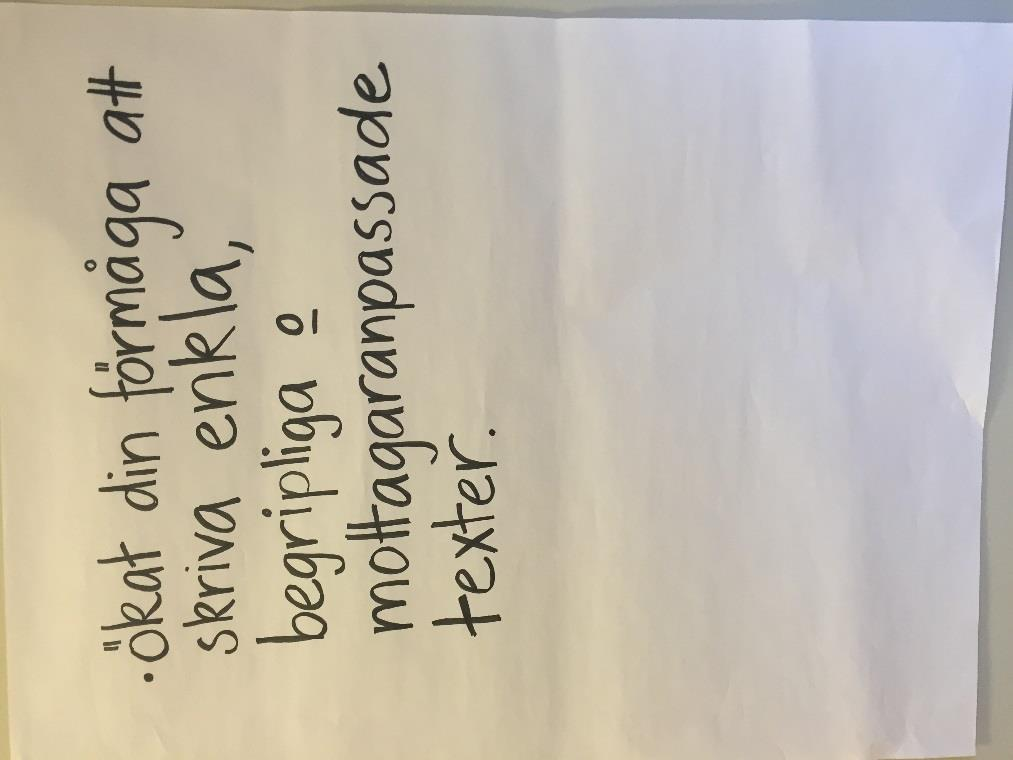 ·ökat din förmåga att
skriva enkla,
begripliga o
mottagaranpassade
texter.